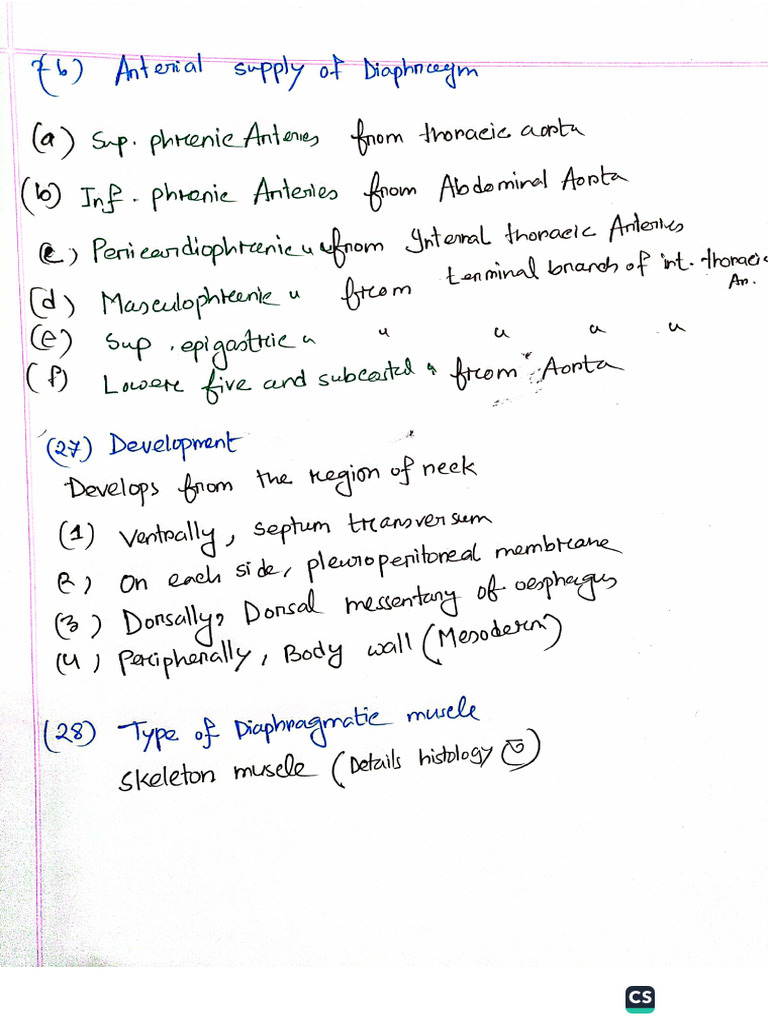 26) Arterial supply of Diaphragm
(a) Sup. phrenic Arteries from thoracic aorta
(b) Inf. phrenic Arteries from Abdominal Aorta
(c) Pericardiophrenic " from Internal thoracic Arteries
(d) Masculophrenic " from terminal branch of int. thoracic Ar.
(e) Sup. epigastric " " " " "
(f) Lowere five and subcostal " from Aorta
(27) Development
Develops from the region of neck
(1) Ventrally, septum transversum
2) On each side, pleuroperitoneal membrane
(3) Dorsally, Dorsal messentary of oesphagus
(4) Peripherally, Body wall (Mesoderm)
(28) Type of Diaphragmatic muscle
Skeleton muscle (Details histology)
CS